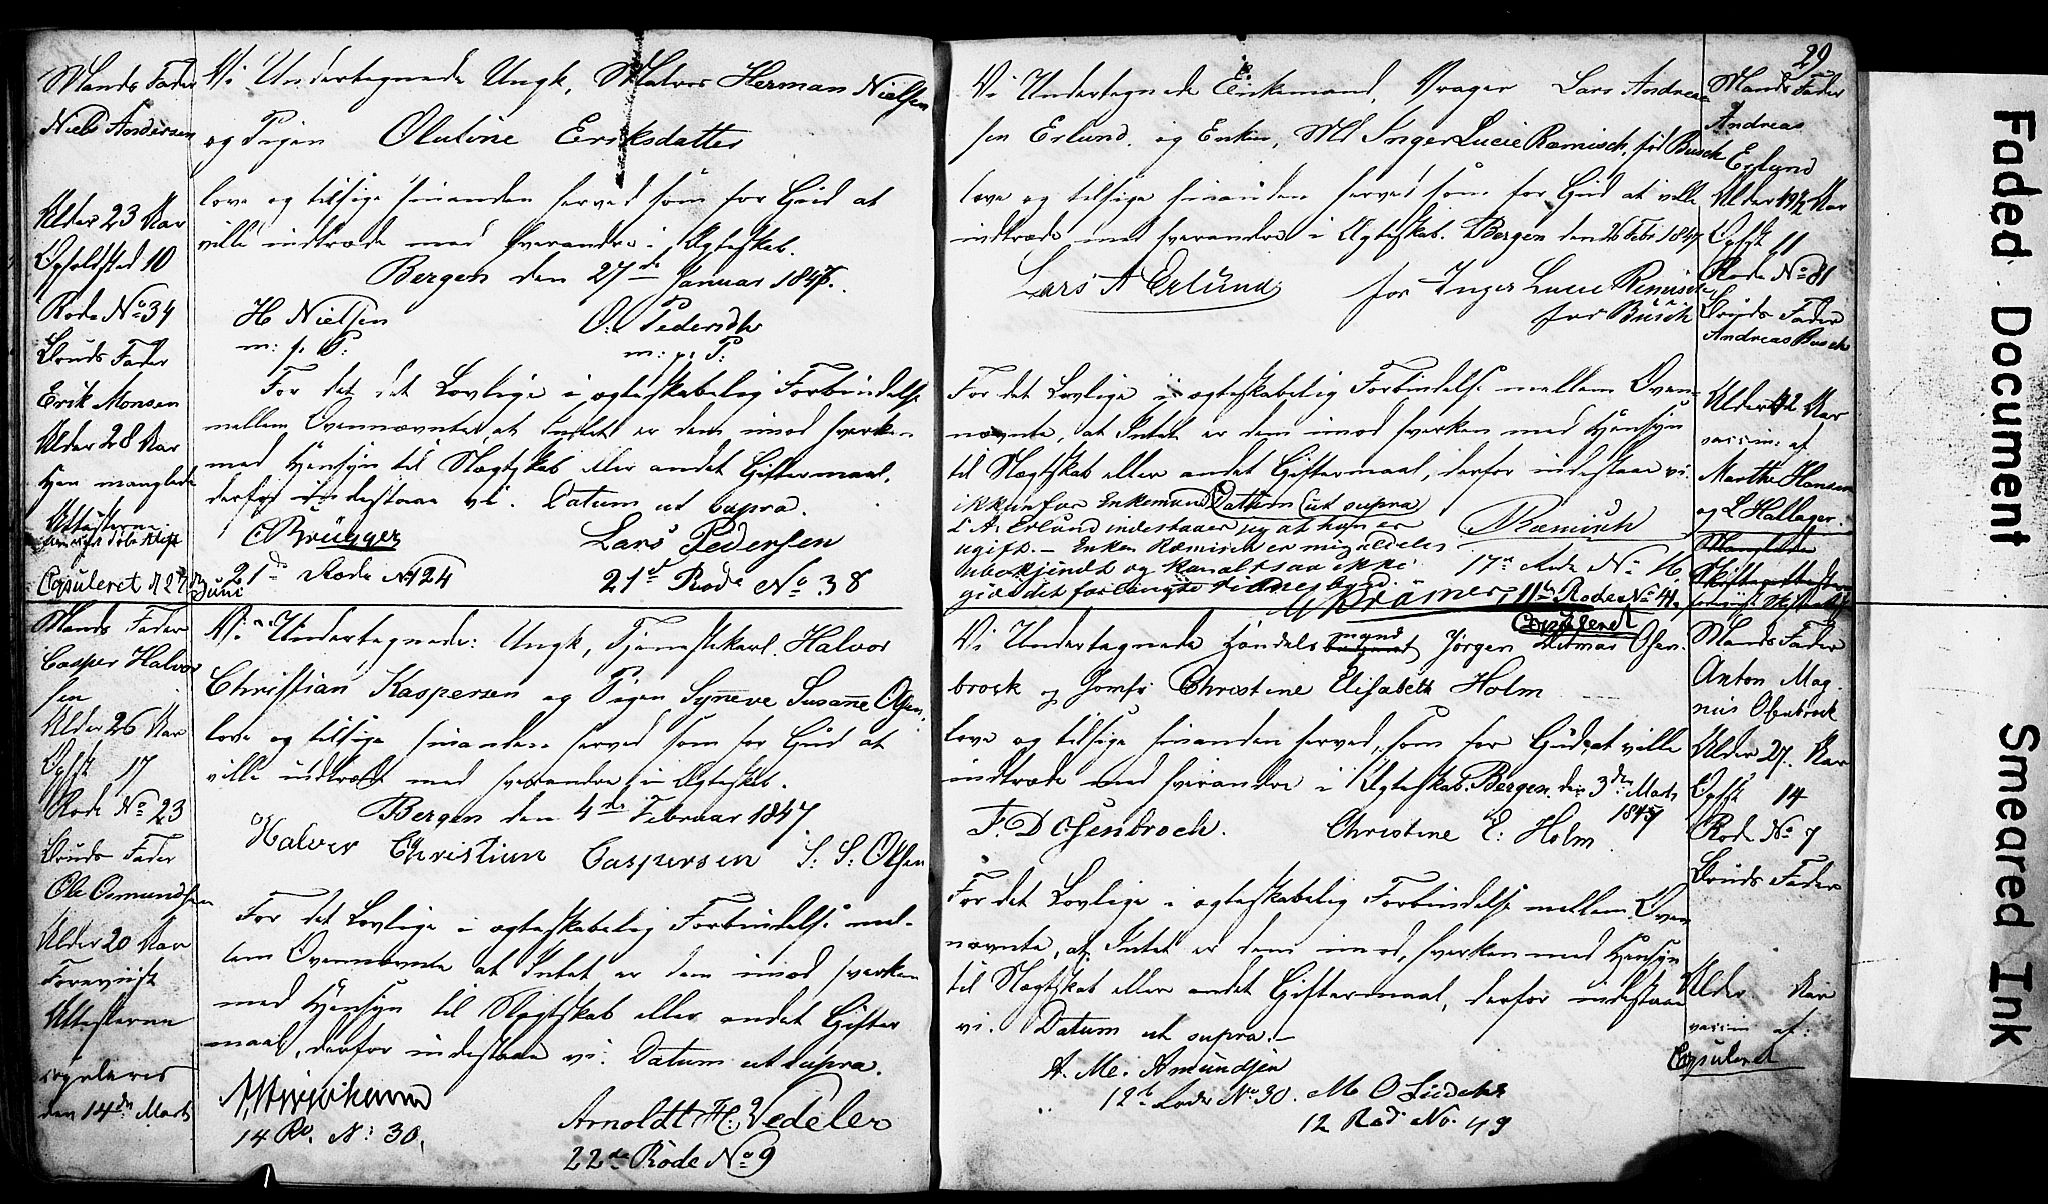 Mands Fader
Niels Andersen
Alder 23 Aar
Opholdsted 10
Rode No 34
Bruds Fader
Erik Monsen
Alder 28 Aar
Han manglede
Attesterne
Copuleret d 27 Juni
Vi Undertegnede Ungk, Herman Nielsen
og Pigen Olutine Eriksdatter
love og tilsige hinanden herved som for Gud at
ville indtræde med hverandre i Ægteskab.
Bergen den 27de Januar 1847.
H Nielsen O. Pedersdtr
m: p. P: m: p. P:
For det det Lovlige i ægteskabelig Forbindelse
mellem Ovennævnte, at Intet er dem imod hverken
med Hensyn til Slægtskab eller andet Giftermaal,
derfor indestaae vi. Datum ut supra.
C Brügger Lars Pedersen
21de Rode No 124 21de Rode No 38
Mands Fader
Casper Halvor
sen
Alder 26 Aar
Opst 17
Rode No 23
Bruds Fader
Ole Osmundsen
Alder 20 Aar
Foreviist
Attesterne
copuleres
den 14de Marts
Vi Undertegnede: Ungk, Tjenestekarl Halvor
Christian Kaspersen og Pigen Syneve Susanne Olsen,
love og tilsige hinanden herved som for Gud at
ville indtræde med hverandre i Ægteskab.
Bergen den 4de Februar 1847
Halver Christian Caspersen S: S: Olsen
For det Lovlige i ægteskabelig Forbindelse mel-
lem Ovennævnte at Intet er dem imod hverken
med Hensyn til Slægtskab eller andet Gifter
maal, derfor indestaae vi. Datum ut supra.
14 Ro. N: 30, Arnoldt H: Vedeler
22de Rode No 9
29
Vi Undertegnede Enkemand, Lars Andrea
sen Erlund og Enken, Md Inger Lucie Ræmisch, fød Busch
love og tilsige hinanden herved som for Gud at ville
indtræde med hverandre i Ægteskab. Bergen den 26 Febr 1847
Lars A Erlund for Inger Lucie Remisch
før Busch
For det Lovlige i ægteskabelig Forbindelse mellem Oven-
nævnte, at Intet er dem imod hverken med Hensyn
til Slægtskab eller andet Giftermaal, derfor indestaae vi.
ikkun for Enkemand Datum ut supra
L A. Erlund indestaaer jeg at han er Ræmisch
ugift. - Enken Ræmisch er mig aldeles
ubekjendt og kan altsaa ikke 17de Rode No 16
give det forlangte Vidnesbyrd.
Krämer, 11te Rode No 41.
Mands Fader
Andreas
Erlund
Opst 11
Rode No 81
Bruds Fader
Andreas Busch
Alder 42 Aar
vaccin: af
Marthe Hansen
og L Hallager.
Manglede
Copuleret
Vi Undertegnede Handels mynd Jørgen Ditmar Osen-
brock og Jomfr Christine Elisabeth Holm
love og tilsige hinanden herved, som for Gud, at ville
indtræde med hverandre i Ægteskab. Bergen den 3de Marts
1847
J. D Osenbroch. Christine E: Holm
For det Lovlige i ægteskabelig Forbindelse mellem Oven
nævnte, at Intet er dem imod, hverken med Hensyn
til Slægtskab eller andet Giftermaal, derfor indestaae
vi. Datum ut supra.-
A. Me. Amundsen
12te Rode No 30. M O Lüdeke
12 Rod No. 49
Mands Fader
Anton Mag-
nus Osenbrock
Alder 27. Aar
Opst 14
Rode No 7
Bruds Fader
Alder Aar
vaccin af:
Copuleret
Faded Document
Smeared Ink